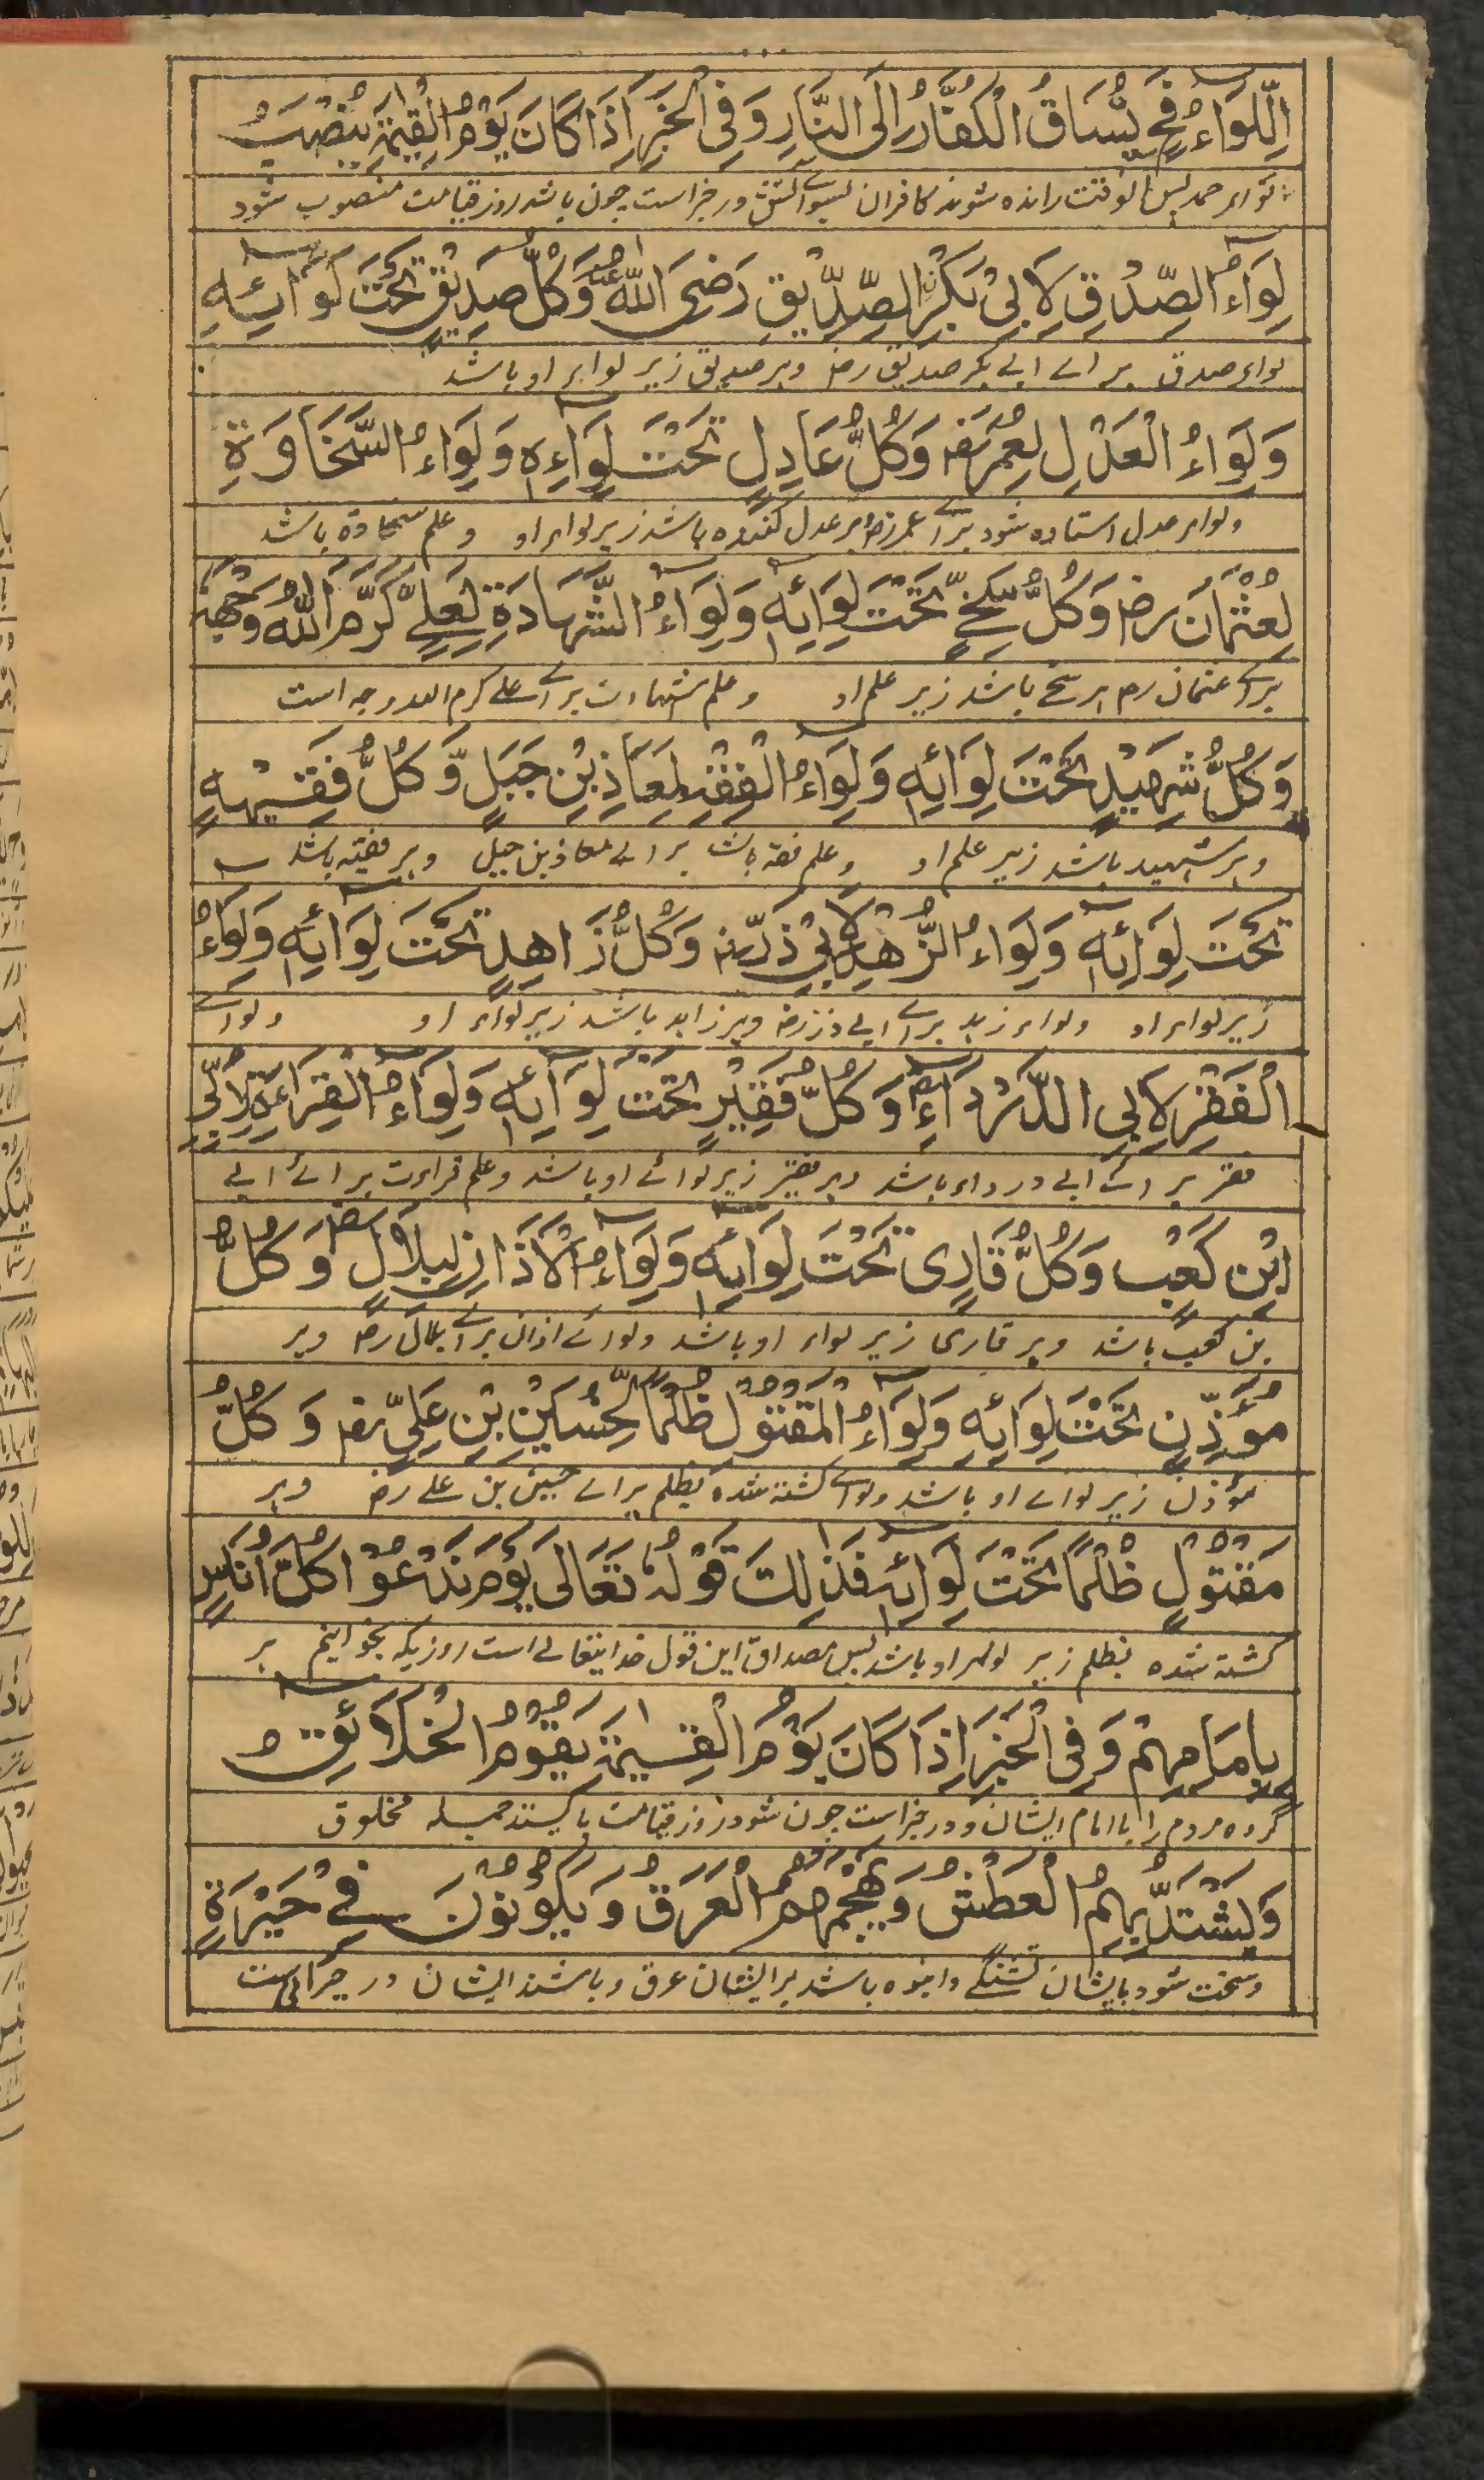 اِلِّلوَاءُ فَحِ يُسَاقُ الْكُفَّارُ اِلَى النَّارِ وَفِى الْخَبَرِ اِذَا كَانَ يَوْمُ الْقِيٰمَةِ يُنْصَبُ
لواء حمد پس الوقت رانده شوند كافران بسوے آتش و در خبر است چون باشد روز قيامت منصوب شود
لِوَاءُ الصِّدْقِ لِاَبِىْ بَكْرِنِ الصِّدِّيْقِ رَضِىَ اللّٰهُ عَنْهُ وَكُلُّ صِدِيْقٍ تَحْتَ لِوَائِهٖ
لواء صدق براے ابے بكر صديق رض وہر صديق زير لواء او باشد
وَلِوَاءُ الْعَدْلِ لِعُمَرَ رض وَكُلُّ عَادِلٍ تَحْتَ لِوَاءِهٖ وَلِوَاءُ السَّخَاوَةِ
ولواء عدل استاده شود براے عمر رض وہر عدل كننده باشد زير لواء او وعلم سخاوة باشد
لِعُثْمَانَ رض وَكُلُّ سَخِىٍّ تَحْتَ لِوَائِهٖ وَلِوَاءُ الشَّهَادَةِ لِعَلِىٍّ كَرَّمَ اللّٰهُ وَجْهَهٗ
براے عثمان رض ہر سخے باشد زير علم او وعلم شہادت براے علے كرم اللہ وجہ است
وَكُلُّ شَهِيْدٍ تَحْتَ لِوَائِهٖ وَلِوَاءُ الْفِقْهِ لِمَعَاذِ بْنِ جَبَلٍ وَّكُلُّ فَقِيْهٍ
وہر شہيد باشد زير علم او وعلم فقہ باشد براے معاذ بن جبل وہر فقيہ باشد
تَحْتَ لِوَائِهٖ وَلِوَاءُ الزُّهْدِ لِاَبِىْ ذَرٍّ رض وَكُلُّ زَاهِدٍ تَحْتَ لِوَائِهٖ وَلِوَاءُ
زير لواء او ولواء زہد براے ابے ذر رض وہر زاہد باشد زير لواء او ولواے
الْفَقْرِ لِاَبِى الدَّرْدَآءِ رض وَكُلُّ فَقِيْرٍ تَحْتَ لِوَائِهٖ وَلِوَاءُ الْقِرَاءَةِ لِاُبَىِّ
فقر براے ابے درداء باشد وہر فقير زير لوائے او باشد وعلم قراءت برائے ابے
ابْنِ كَعْبٍ وَكُلُّ قَارِىٍ تَحْتَ لِوَائِهٖ وَلِوَاءُ الْاَذَانِ لِبِلَالٍ رض وَكُلُّ
بن كعب باشد وہر قارى زير لواء او باشد ولوائے اذان براے بلال رض وہر
مُؤَذِّنٍ تَحْتَ لِوَائِهٖ وَلِوَاءُ الْمَقْتُوْلِ ظُلْمًا لِّحُسَيْنِ بْنِ عَلِىٍّ رض وَكُلُّ
مؤذن زير لواے او باشد ولواے كشتہ شده بظلم براے حسين بن علے رض وہر
مَقْتُوْلٍ ظُلْمًا تَحْتَ لِوَائِهٖ فَذٰلِكَ قَوْلُهٗ تَعَالٰى يَوْمَ نَدْعُوْا كُلَّ اُنَاسٍ
كشتہ شده بظلم زير لواء او باشد پس مصداق اين قول خدايتعالے است روزيكہ بخوانيم ہر
بِاِمَامِهِمْ وَفِى الْخَبَرِ اِذَا كَانَ يَوْمُ الْقِيٰمَةِ يَقُوْمُ الْخَلَائِقُ
گروه مردم را با امام ايشان و در خبر است چون شود روز قيامت بايستند جميلہ مخلوق
وَيَشْتَدُّ بِهِمُ الْعَطْشُ وَيَهْجُمُهُمُ الْعَرَقُ وَيَكُوْنُوْنَ فِىْ حَيْرَةٍ
وسخت شود بايشان تشنگے وانبوه باشد بر ايشان عرق وباشند ايشان در حيرانى است